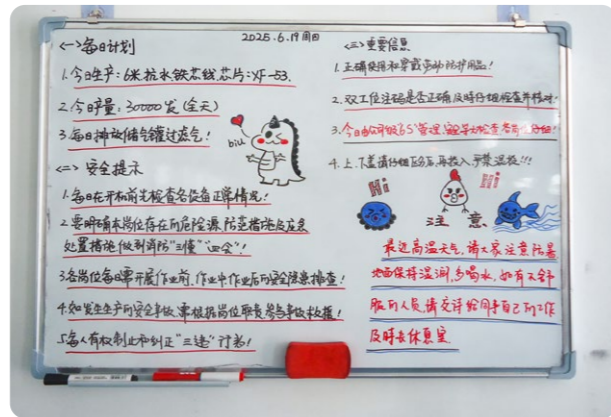 2025.6.19周四
<一>每日计划
1.今日生产:6米抗水铁芯线,芯片:XF-53.
2.今日产量:30000发(全天)
3.每日排放储气罐过滤气!
biu
<二>安全提示
1.每日在开机前先检查各设备正常情况!
2.要明确本岗位存在的危险源、防范措施及应急
处置措施,做到消防"三懂""四会"!
3.各岗位每日需开展作业前、作业中、作业后的安全隐患排查!
4.如发生生产的安全事故,需根据岗位职责参与事故救援!
5.每人有权制止和纠正"三违"行为!
<三>重要信息
1.正确使用和穿戴劳动防护用品!
2.双工位注码是否正确及时仔细检查并核对!
3.今日由6S管理,
4.上、下盖请仔细区分后,再投入,严禁混投!!!
Hi
Hi
注 意
最近高温天气,请大家注意防暑
地面保持湿润,多喝水,如有不舒
服的人员,请交待给同事自己的工作
及时去休息室